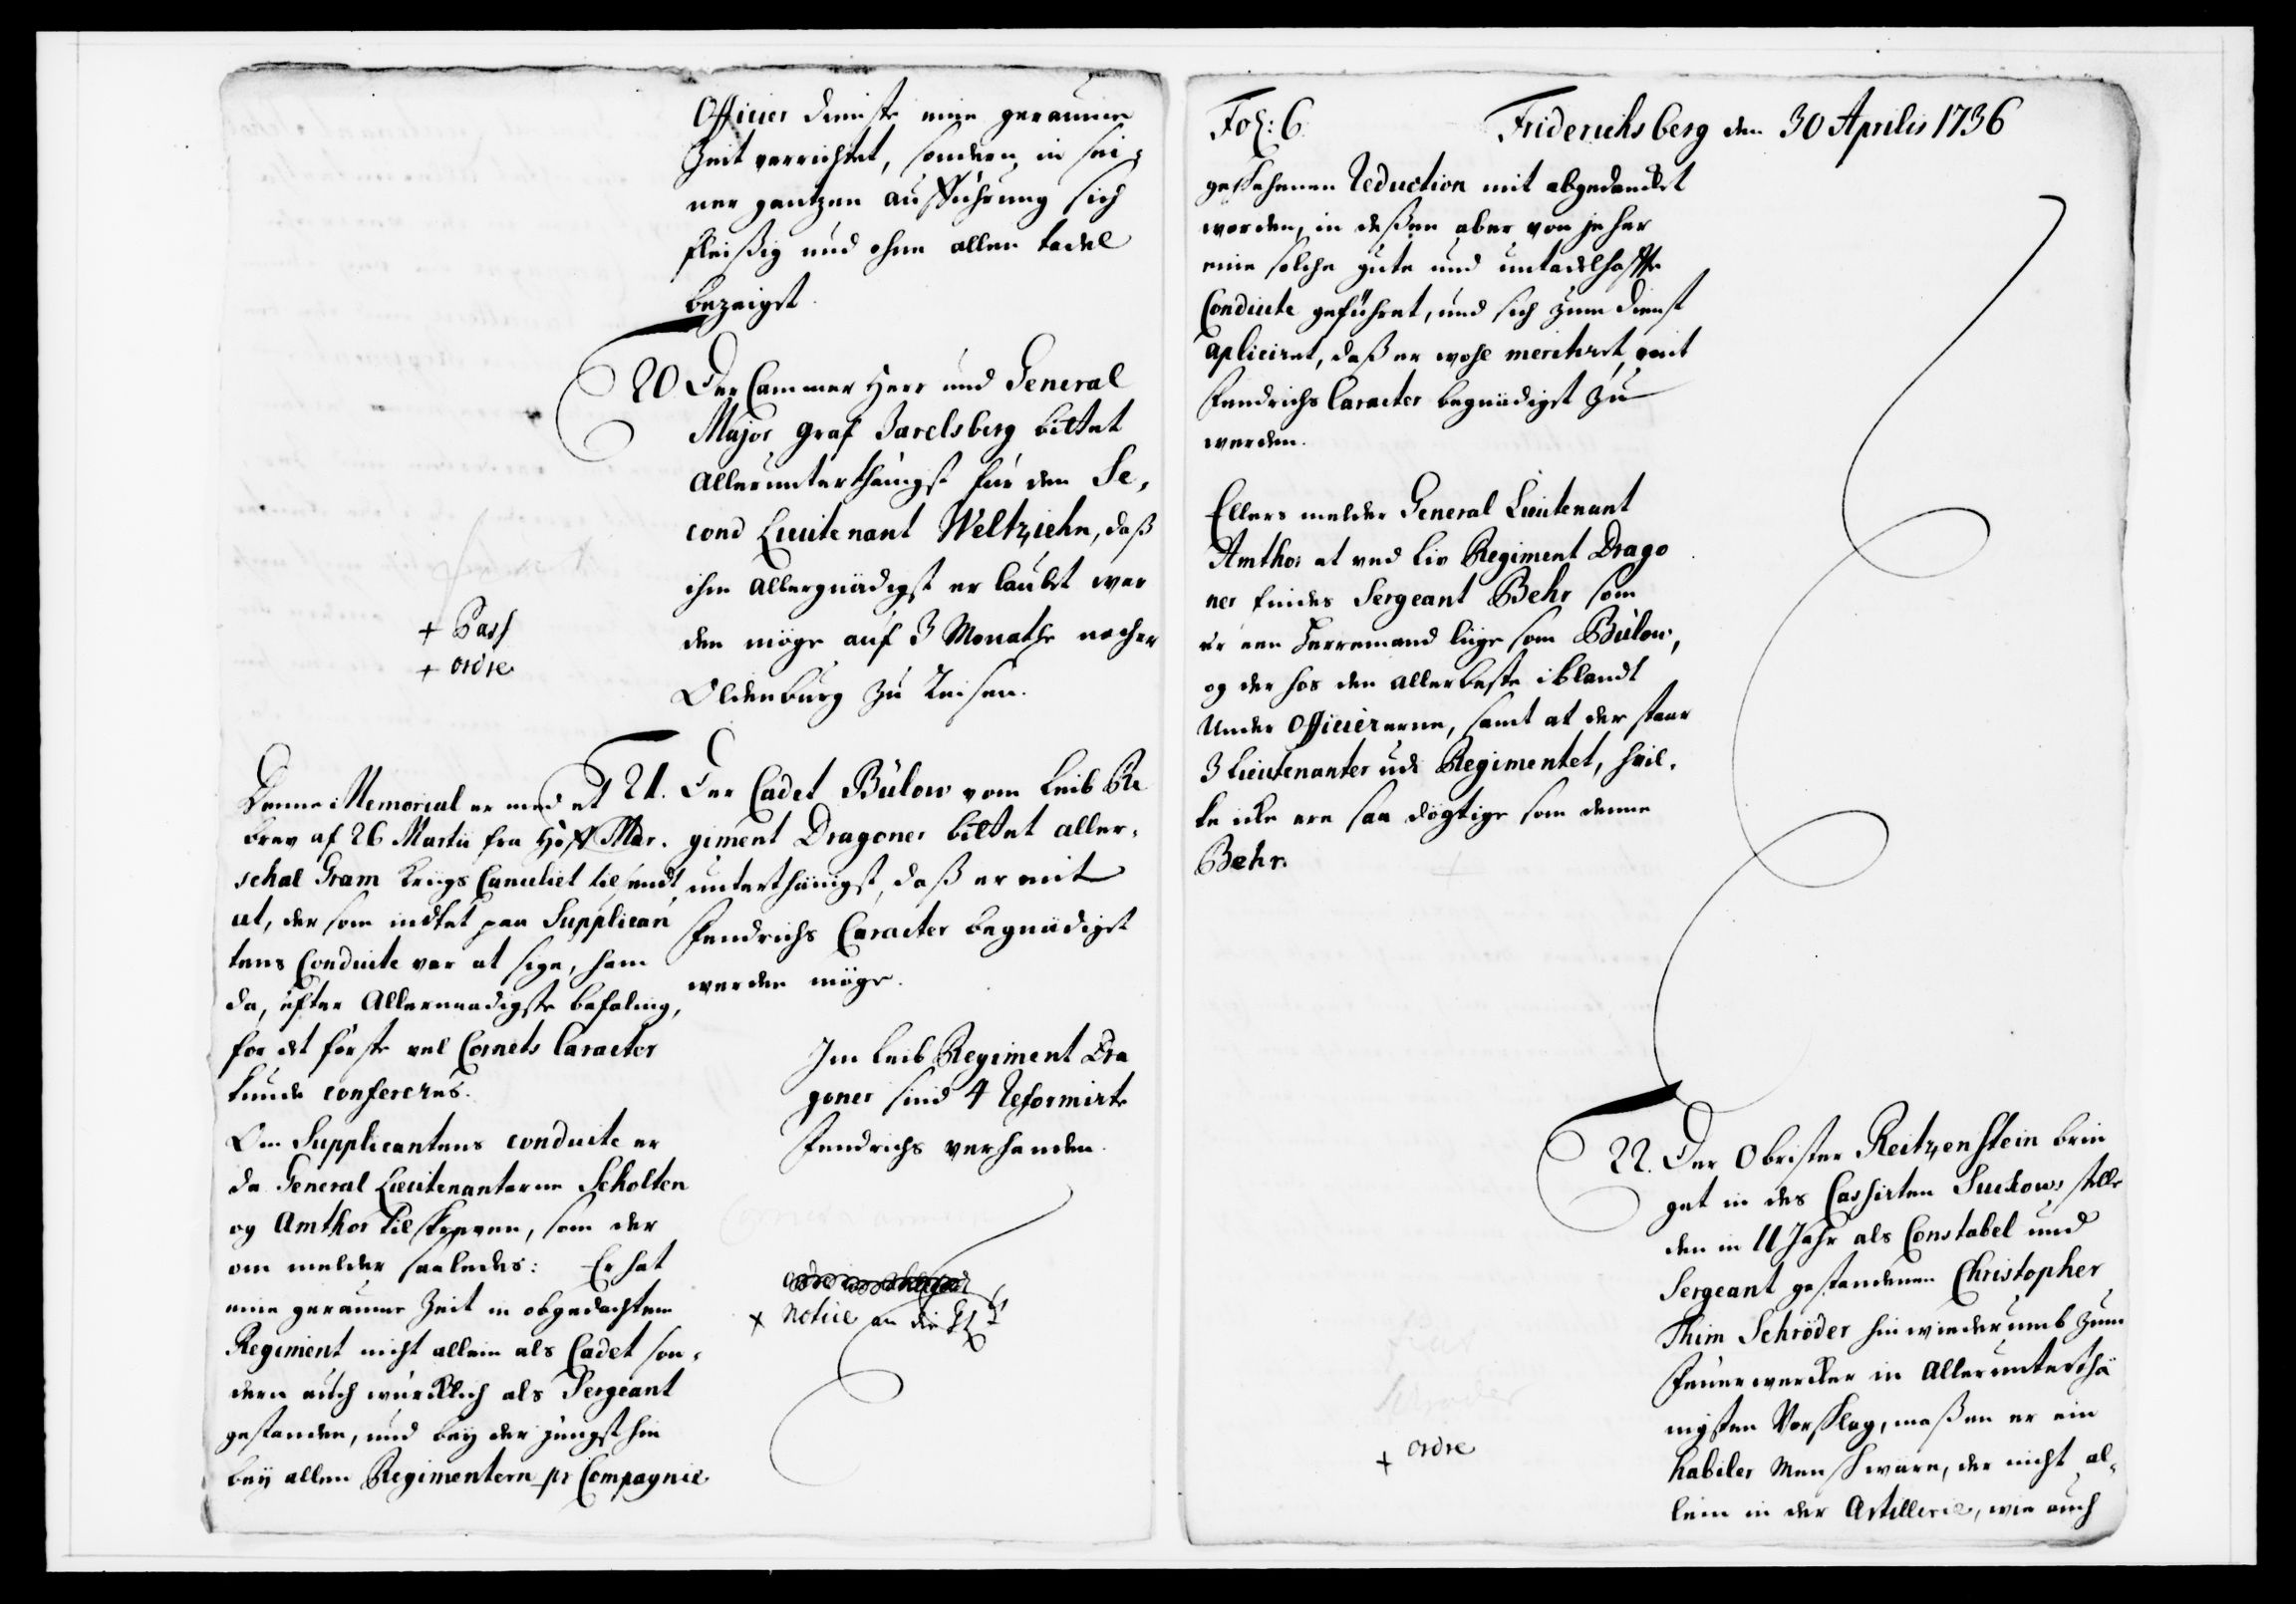 Officier dienste eine geraume
Zeit verrichtet, sondern in sei-
ner gantzen aufführung sich
fleißig und ohne allen tadel
bezeiget.
20 Der Cammer Herr und General
Major Graf Jarelsberg bittet
allerunterthänigst für den Se-
cond Lieutenant Weltziehn, daß
ihm allergnädigst erlaubet wer
den möge auf 3 Monathe nacher
Oldenburg zu Reisen.
+ Pass
+ ordre
21. Der Cadet Bülow vom Leib Re
giment Dragoner bittet aller-
unterthänigst, daß er mit
Fendrichs Caracter begnädiget
werden möge.
Im Leib Regiment Dra
goner sind 4 Reformirte
Fendrichs verhanden.
x Notice an die
Denne Memorial er med et
brev af 26 Martii fra Hoff Mar-
schal Gram Kriigs Canceliet tilsendt,
at, der som indtet paa Supplican
tens Conduite var at sige, ham
da, efter Allernaadigste befaling,
for det første vel Cornets Caracter
kunde confereres.
Om Supplicantens conduite er
da General Lieutenanterne Scholten
og Amthor tilskreven, som der
om melder saaledes: Er hat
eine geraume Zeit in obgedachtem
Regiment nicht allein als Cadet son-
dern auch würcklich als Sergeant
gestanden, und bey der jüngsthin
bey allen Regimentern pr Compagnie
Fol: 6. Friderichsberg den 30 Aprilis 1736
geschehenen Reduction mit abgedanckt
worden, in deßen aber von jeher
eine solche gute und untadelhaffte
Conduite geführet, und sich zum dienst
apliciret, daß er wohl meritiret, mit
Fendrichs Caracter begnädiget zu
werden.
Ellers melder General Lieutenant
Amthor at ved Liv Regiment Drago
ner findes Sergeant Behr som
er een Herremand liige som Bülow,
og der hos den allerbeste iblandt
Under Officiererne, samt at der staar
3 Lieutenanter ved Regimentet, hvil-
ke icke ere saa dögtige som denne
Behr.
22. Der Obrister Reitzenstein brin
get in des Cassirten Suckows stelle
den in 11 Jahr als Constabel und
Sergeant gestandenen Christopher
Thim Schröder hinwiederumb zum
Feuerwercker in allerunterthä
nigsten Vorschlag, maßen er ein
habiler Mensch wäre, der nicht al-
lein in der Artillerie, wie auch
+ ordre